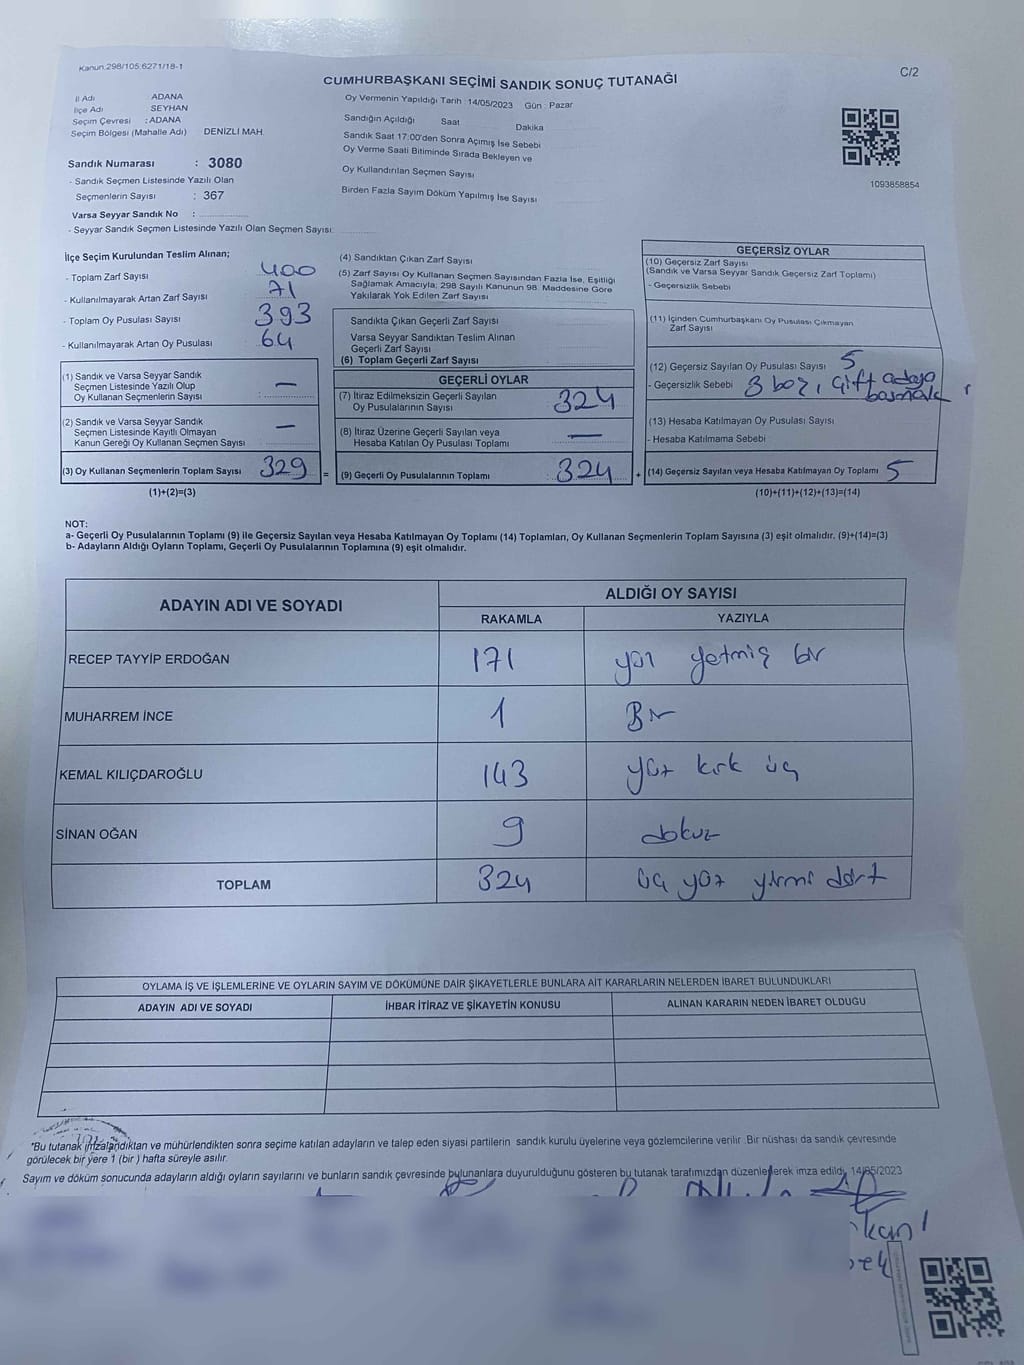 Kanun:298/105:6271/18-1
CUMHURBAŞKANI SEÇİMİ SANDIK SONUÇ TUTANAĞI
C/2
İl Adı : ADANA
İlçe Adı SEYHAN
Seçim Çevresi : ADANA
Seçim Bölgesi (Mahalle Adı) DENİZLİ MAH.
Sandık Numarası : 3080
- Sandık Seçmen Listesinde Yazılı Olan
Seçmenlerin Sayısı : 367
Varsa Seyyar Sandık No :
- Seyyar Sandık Seçmen Listesinde Yazılı Olan Seçmen Sayısı:
Oy Vermenin Yapıldığı Tarih : 14/05/2023 Gün : Pazar
Sandığın Açıldığı Saat Dakika
Sandık Saat 17:00'den Sonra Açımış İse Sebebi
Oy Verme Saati Bitiminde Sırada Bekleyen ve
Oy Kullandırılan Seçmen Sayısı
Birden Fazla Sayım Döküm Yapılmış İse Sayısı
1093858854
İlçe Seçim Kurulundan Teslim Alınan;
- Toplam Zarf Sayısı 400
- Kullanılmayarak Artan Zarf Sayısı 71
- Toplam Oy Pusulası Sayısı 393
- Kullanılmayarak Artan Oy Pusulası 64
(1) Sandık ve Varsa Seyyar Sandık
Seçmen Listesinde Yazılı Olup
Oy Kullanan Seçmenlerin Sayısı —
(2) Sandık ve Varsa Seyyar Sandık
Seçmen Listesinde Kayıtlı Olmayan
Kanun Gereği Oy Kullanan Seçmen Sayısı —
(3) Oy Kullanan Seçmenlerin Toplam Sayısı 329 =
(1)+(2)=(3)
(4) Sandıktan Çıkan Zarf Sayısı
(5) Zarf Sayısı Oy Kullanan Seçmen Sayısından Fazla İse, Eşitliği
Sağlamak Amacıyla; 298 Sayılı Kanunun 98. Maddesine Göre
Yakılarak Yok Edilen Zarf Sayısı
Sandıkta Çıkan Geçerli Zarf Sayısı
Varsa Seyyar Sandıktan Teslim Alınan
Geçerli Zarf Sayısı
(6) Toplam Geçerli Zarf Sayısı
GEÇERLİ OYLAR
(7) İtiraz Edilmeksizin Geçerli Sayılan
Oy Pusulalarının Sayısı 324
(8) İtiraz Üzerine Geçerli Sayılan veya
Hesaba Katılan Oy Pusulası Toplamı —
(9) Geçerli Oy Pusulalarının Toplamı 324 +
GEÇERSİZ OYLAR
(10) Geçersiz Zarf Sayısı
(Sandık ve Varsa Seyyar Sandık Geçersiz Zarf Toplamı)
- Geçersizlik Sebebi
(11) İçinden Cumhurbaşkanı Oy Pusulası Çıkmayan
Zarf Sayısı
(12) Geçersiz Sayılan Oy Pusulası Sayısı 5
- Geçersizlik Sebebi 3 boş, çift adaya
basmak
(13) Hesaba Katılmayan Oy Pusulası Sayısı
- Hesaba Katılmama Sebebi
(14) Geçersiz Sayılan veya Hesaba Katılmayan Oy Toplamı 5
(10)+(11)+(12)+(13)=(14)
NOT:
a- Geçerli Oy Pusulalarının Toplamı (9) ile Geçersiz Sayılan veya Hesaba Katılmayan Oy Toplamı (14) Toplamları, Oy Kullanan Seçmenlerin Toplam Sayısına (3) eşit olmalıdır. (9)+(14)=(3)
b- Adayların Aldığı Oyların Toplamı, Geçerli Oy Pusulalarının Toplamına (9) eşit olmalıdır.
ADAYIN ADI VE SOYADI ALDIĞI OY SAYISI
RAKAMLA YAZIYLA
RECEP TAYYİP ERDOĞAN 171 yüz yetmiş bir
MUHARREM İNCE 1 Bir
KEMAL KILIÇDAROĞLU 143 yüz kırk üç
SİNAN OĞAN 9 dokuz
TOPLAM 324 üç yüz yirmi dört
OYLAMA İŞ VE İŞLEMLERİNE VE OYLARIN SAYIM VE DÖKÜMÜNE DAİR ŞİKAYETLERLE BUNLARA AİT KARARLARIN NELERDEN İBARET BULUNDUKLARI
ADAYIN ADI VE SOYADI İHBAR İTİRAZ VE ŞİKAYETİN KONUSU ALINAN KARARIN NEDEN İBARET OLDUĞU
*Bu tutanak imzalandıktan ve mühürlendikten sonra seçime katılan adayların ve talep eden siyasi partilerin sandık kurulu üyelerine veya gözlemcilerine verilir .Bir nüshası da sandık çevresinde
görülecek bir yere 1 (bir ) hafta süreyle asılır.
Sayım ve döküm sonucunda adayların aldığı oyların sayılarını ve bunların sandık çevresinde bulunanlara duyurulduğunu gösteren bu tutanak tarafımızdan düzenlenerek imza edildi. 14/05/2023